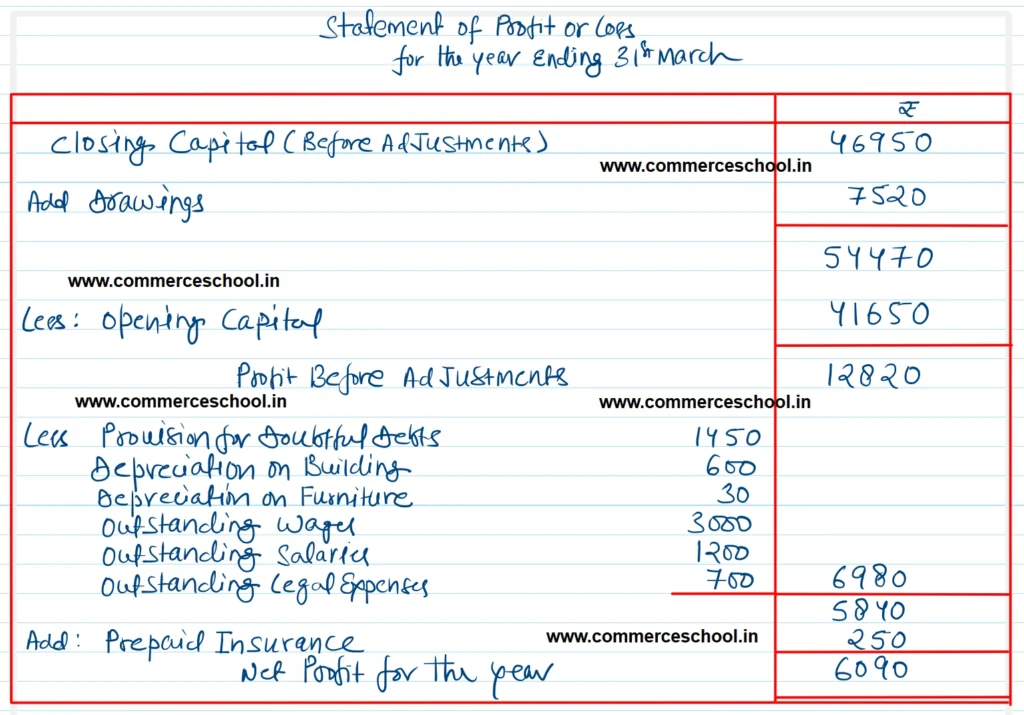 Statement of Profit or Loss
for the year Ending 31st March
₹
Closing Capital (Before Adjustments) 46950
www.commerceschool.in
Add Drawings 7520
54470
www.commerceschool.in
Less: Opening Capital 41650
Profit Before Adjustments 12820
www.commerceschool.in www.commerceschool.in
Less Provision for Doubtful Debts 1450
Depreciation on Building 600
Depreciation on Furniture 30
Outstanding Wages 3000
Outstanding Salaries 1200
Outstanding Legal Expenses 700 6980
5840
Add: Prepaid Insurance www.commerceschool.in 250
Net Profit for the year 6090